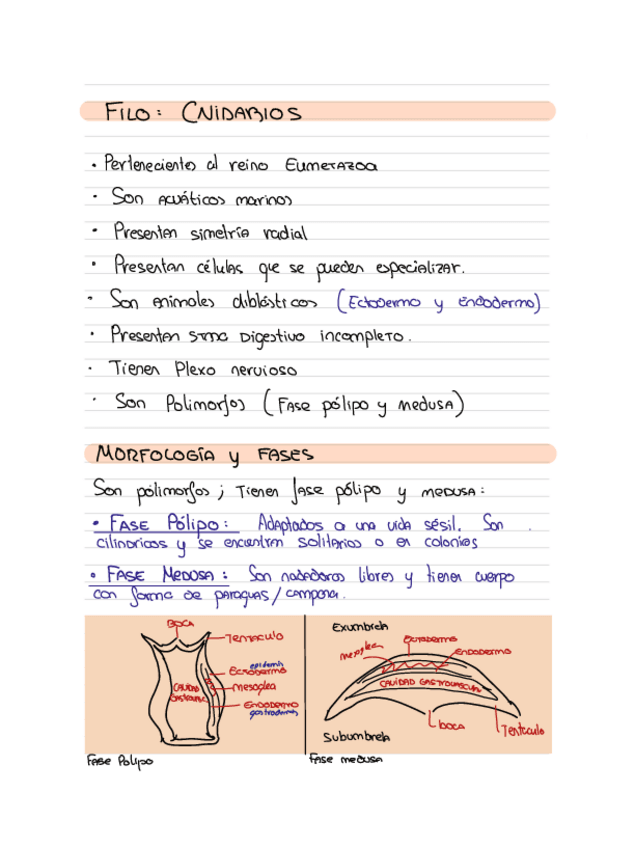 FILO: CNIDARIOS
· Pertenecientes al reino EUMETAZOA
· Son ACUÁTICOS marinos
· Presentan simetría radial
· Presentan células que se pueden especializar.
· Son animales diblásticos (Ectodermo y Endodermo)
· Presentan STMA DIGESTIVO incompleto.
· Tienen Plexo nervioso
· Son Polimorfos (FASE pólipo y medusa)
MORFOLOGÍA y FASES
Son polimorfos; Tienen fase pólipo y medusa:
• FASE Pólipo: Adaptados a una vida sésil. Son
cilindricos y se encuentran solitarios o en colonias
• FASE MEDUSA: Son nadadoras libres y tienen cuerpo
con forma de paraguas/campana.
BOCA
Tentaculo
epidermis
Ectodermo
mesoglea
CAVIDAD
Endodermo
gastrodermis
Fase Polipo
Exumbrela
mesoglea
Ectodermo
Endodermo
CAVIDAD GASTROVASCULAR
boca
Tentaculo
Subumbrela
Fase medusa